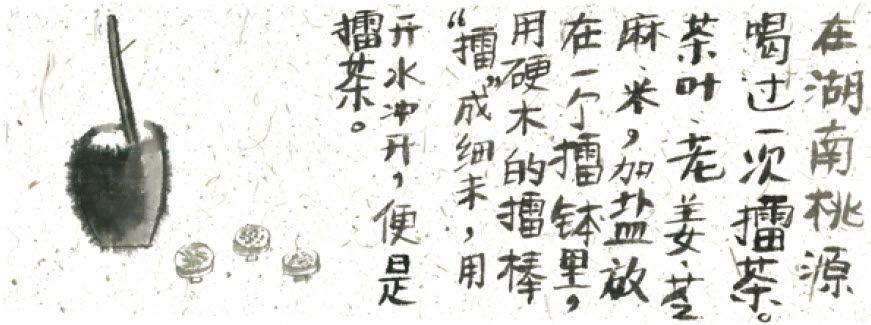 在湖南桃源
喝过一次擂茶。
茶叶、老姜、芝
麻、米，加盐放
在一个擂钵里，
用硬木的擂棒
“擂”成细末，用
开水冲开，便是
擂茶。